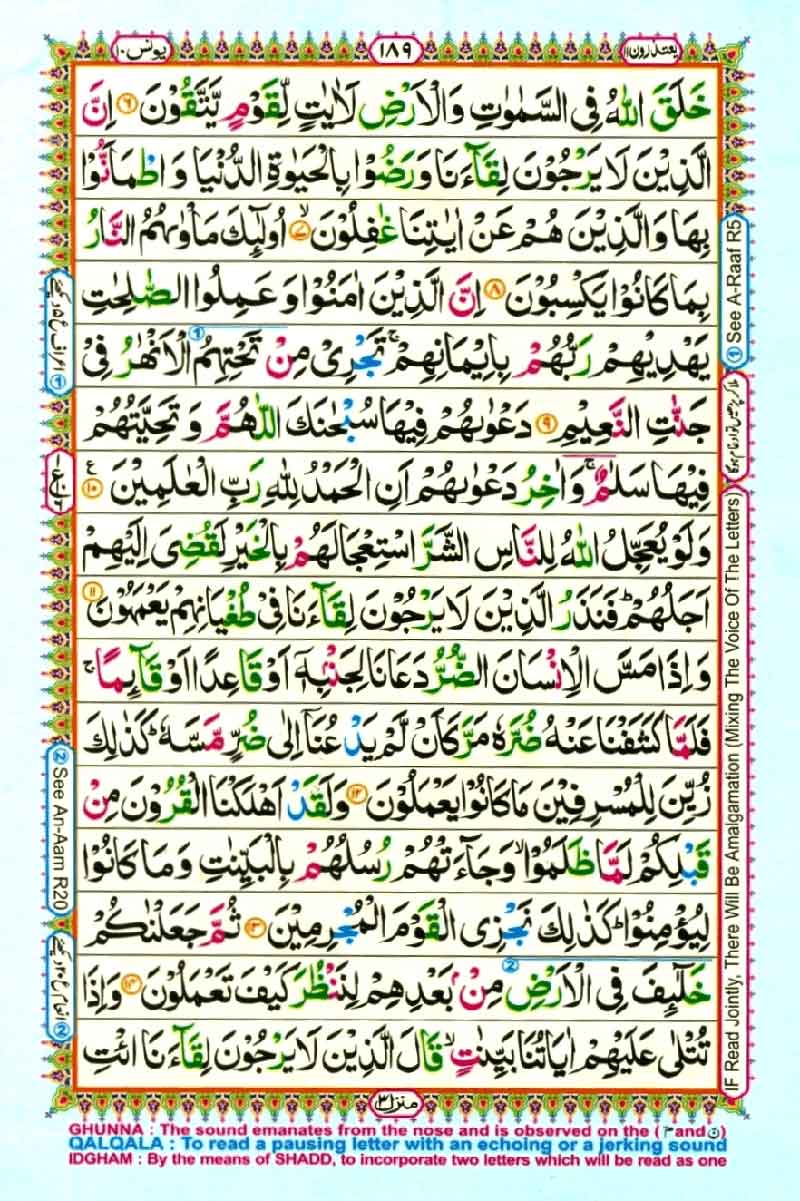 يعتذرون ١١
١٨٩
يونس ١٠
خَلَقَ اللّٰهُ فِى السَّمٰوٰتِ وَالْاَرْضِ لَاٰيٰتٍ لِّقَوْمٍ يَّتَّقُوْنَ ﴿۶﴾ اِنَّ
الَّذِيْنَ لَا يَرْجُوْنَ لِقَآءَنَا وَرَضُوْا بِالْحَيٰوةِ الدُّنْيَا وَاطْمَاَنُّوْا
بِهَا وَالَّذِيْنَ هُمْ عَنْ اٰيٰتِنَا غٰفِلُوْنَ ۙ﴿۷﴾ اُولٰٓئِكَ مَاْوٰىهُمُ النَّارُ
بِمَا كَانُوْا يَكْسِبُوْنَ ﴿۸﴾ اِنَّ الَّذِيْنَ اٰمَنُوْا وَعَمِلُوا الصّٰلِحٰتِ
يَهْدِيْهِمْ رَبُّهُمْ بِاِيْمَانِهِمْ ۚ تَجْرِىْ مِنْ تَحْتِهِمُ الْاَنْهٰرُ فِىْ
جَنّٰتِ النَّعِيْمِ ﴿۹﴾ دَعْوٰىهُمْ فِيْهَا سُبْحٰنَكَ اللّٰهُمَّ وَتَحِيَّتُهُمْ
فِيْهَا سَلٰمٌ ۚ وَاٰخِرُ دَعْوٰىهُمْ اَنِ الْحَمْدُ لِلّٰهِ رَبِّ الْعٰلَمِيْنَ ﴿۱۰﴾ ع
وَلَوْ يُعَجِّلُ اللّٰهُ لِلنَّاسِ الشَّرَّ اسْتِعْجَالَهُمْ بِالْخَيْرِ لَقُضِىَ اِلَيْهِمْ
اَجَلُهُمْ ؕ فَنَذَرُ الَّذِيْنَ لَا يَرْجُوْنَ لِقَآءَنَا فِىْ طُغْيَانِهِمْ يَعْمَهُوْنَ ﴿۱۱﴾
وَاِذَا مَسَّ الْاِنْسَانَ الضُّرُّ دَعَانَا لِجَنْۢبِهٖٓ اَوْ قَاعِدًا اَوْ قَآئِمًا ۚ
فَلَمَّا كَشَفْنَا عَنْهُ ضُرَّهٗ مَرَّ كَاَنْ لَّمْ يَدْعُنَاۤ اِلٰى ضُرٍّ مَّسَّهٗ ؕ كَذٰلِكَ
زُيِّنَ لِلْمُسْرِفِيْنَ مَا كَانُوْا يَعْمَلُوْنَ ﴿۱۲﴾ وَلَقَدْ اَهْلَكْنَا الْقُرُوْنَ مِنْ
قَبْلِكُمْ لَمَّا ظَلَمُوْا ۙ وَجَآءَتْهُمْ رُسُلُهُمْ بِالْبَيِّنٰتِ وَمَا كَانُوْا
لِيُؤْمِنُوْا ؕ كَذٰلِكَ نَجْزِى الْقَوْمَ الْمُجْرِمِيْنَ ﴿۱۳﴾ ثُمَّ جَعَلْنٰكُمْ
خَلٰٓئِفَ فِى الْاَرْضِ مِنْۢ بَعْدِهِمْ لِنَنْظُرَ كَيْفَ تَعْمَلُوْنَ ﴿۱۴﴾ وَاِذَا
تُتْلٰى عَلَيْهِمْ اٰيَاتُنَا بَيِّنٰتٍ ۙ قَالَ الَّذِيْنَ لَا يَرْجُوْنَ لِقَآءَنَا ائْتِ
منزل ٣
① See A-Raaf R5
IF Read Jointly, There Will Be Amalgamation (Mixing The Voice Of The Letters)
② See An-Aam R20
GHUNNA : The sound emanates from the nose and is observed on the (م and ن)
QALQALA : To read a pausing letter with an echoing or a jerking sound
IDGHAM : By the means of SHADD, to incorporate two letters which will be read as one